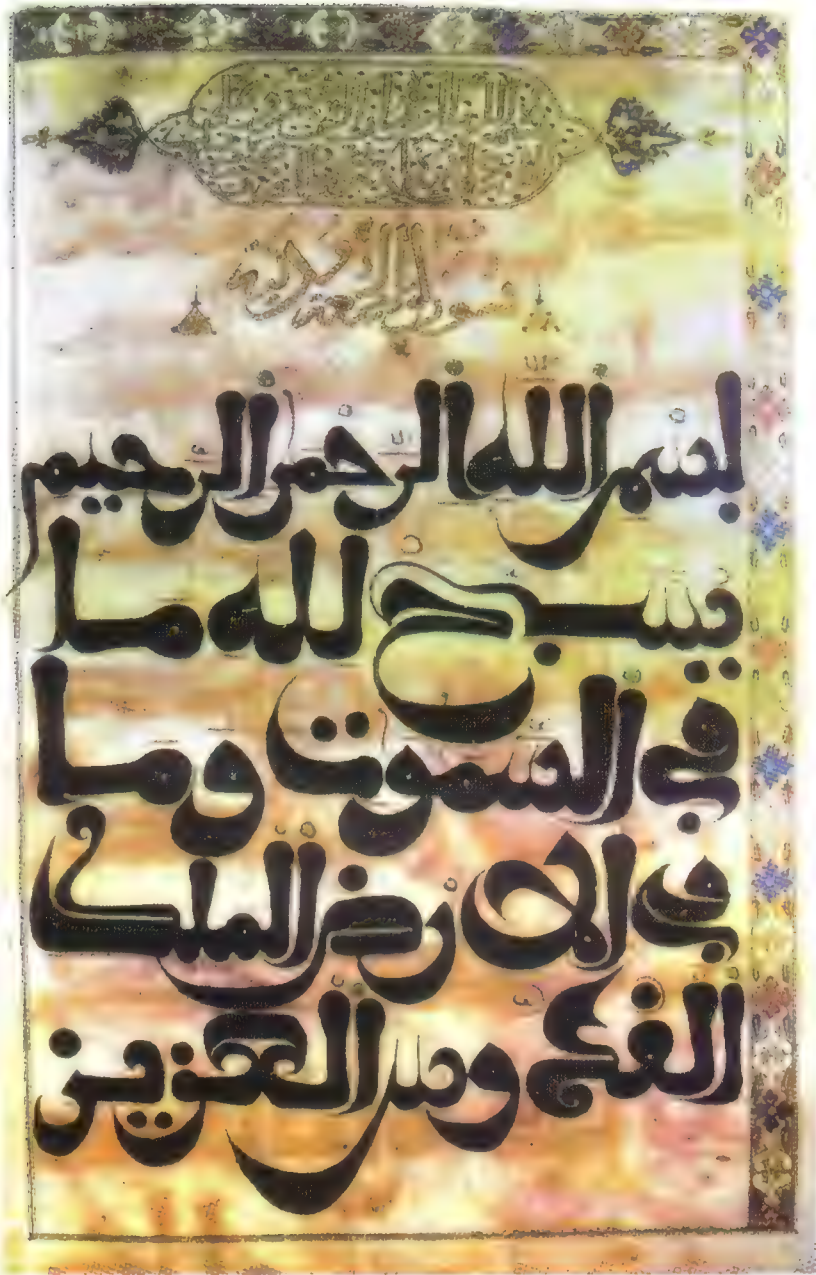 سورة الجمعة مدنية
بسم الله الرحمن الرحيم
يسبح لله ما
في السموت وما
في الارض الملك
القدوس العزيز